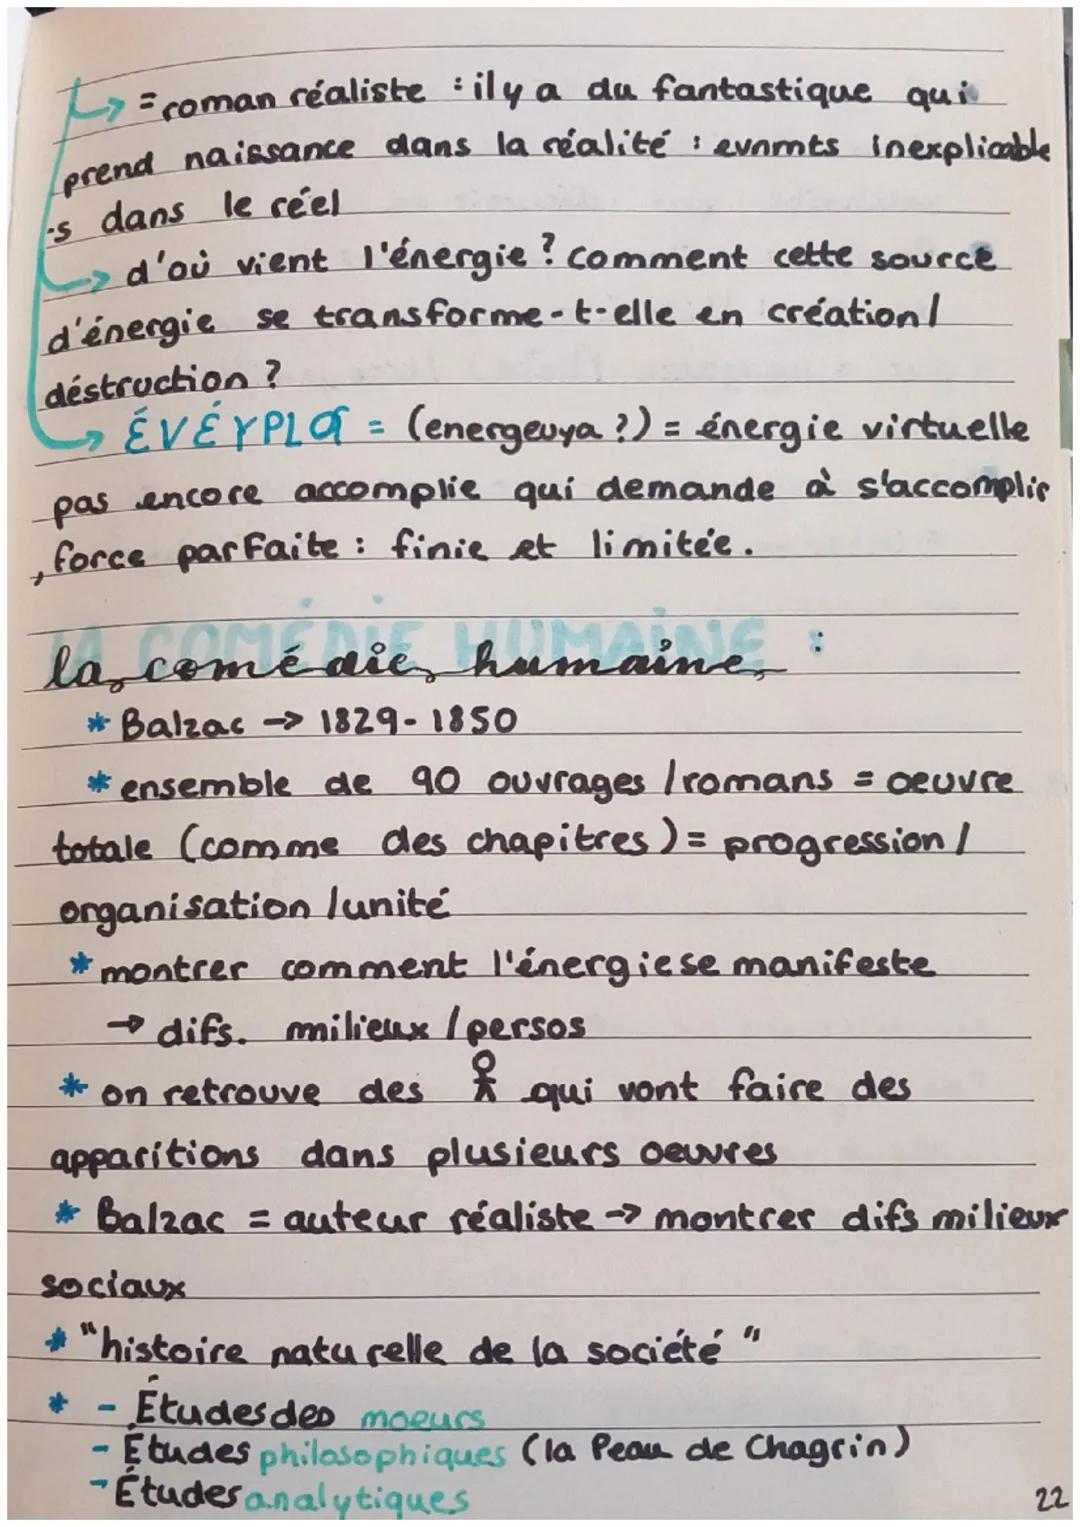 = roman réaliste : il y a du fantastique qui
prend naissance dans la réalité : evnmts inexplicable
-s dans le réel
d'où vient l'énergie ? comment cette source
d'énergie se transforme-t-elle en création /
déstruction ?
ÉVÉYPLO = (energeuya ?) = énergie virtuelle
pas encore accomplie qui demande à s'accomplir
, force parfaite : finie et limitée.
LA COMÉDIE HUMAINE :
la comédie humaine
* Balzac → 1829-1850
* ensemble de 90 ouvrages / romans = oeuvre
totale (comme des chapitres) = progression /
organisation / unité
* montrer comment l'énergie se manifeste
→ difs. milieux / persos
* on retrouve des qui vont faire des
apparitions dans plusieurs oeuvres
* Balzac = auteur réaliste → montrer difs milieux
sociaux
* "histoire naturelle de la société"
* - Études des moeurs
- Études philosophiques (la Peau de Chagrin)
- Études analytiques
22